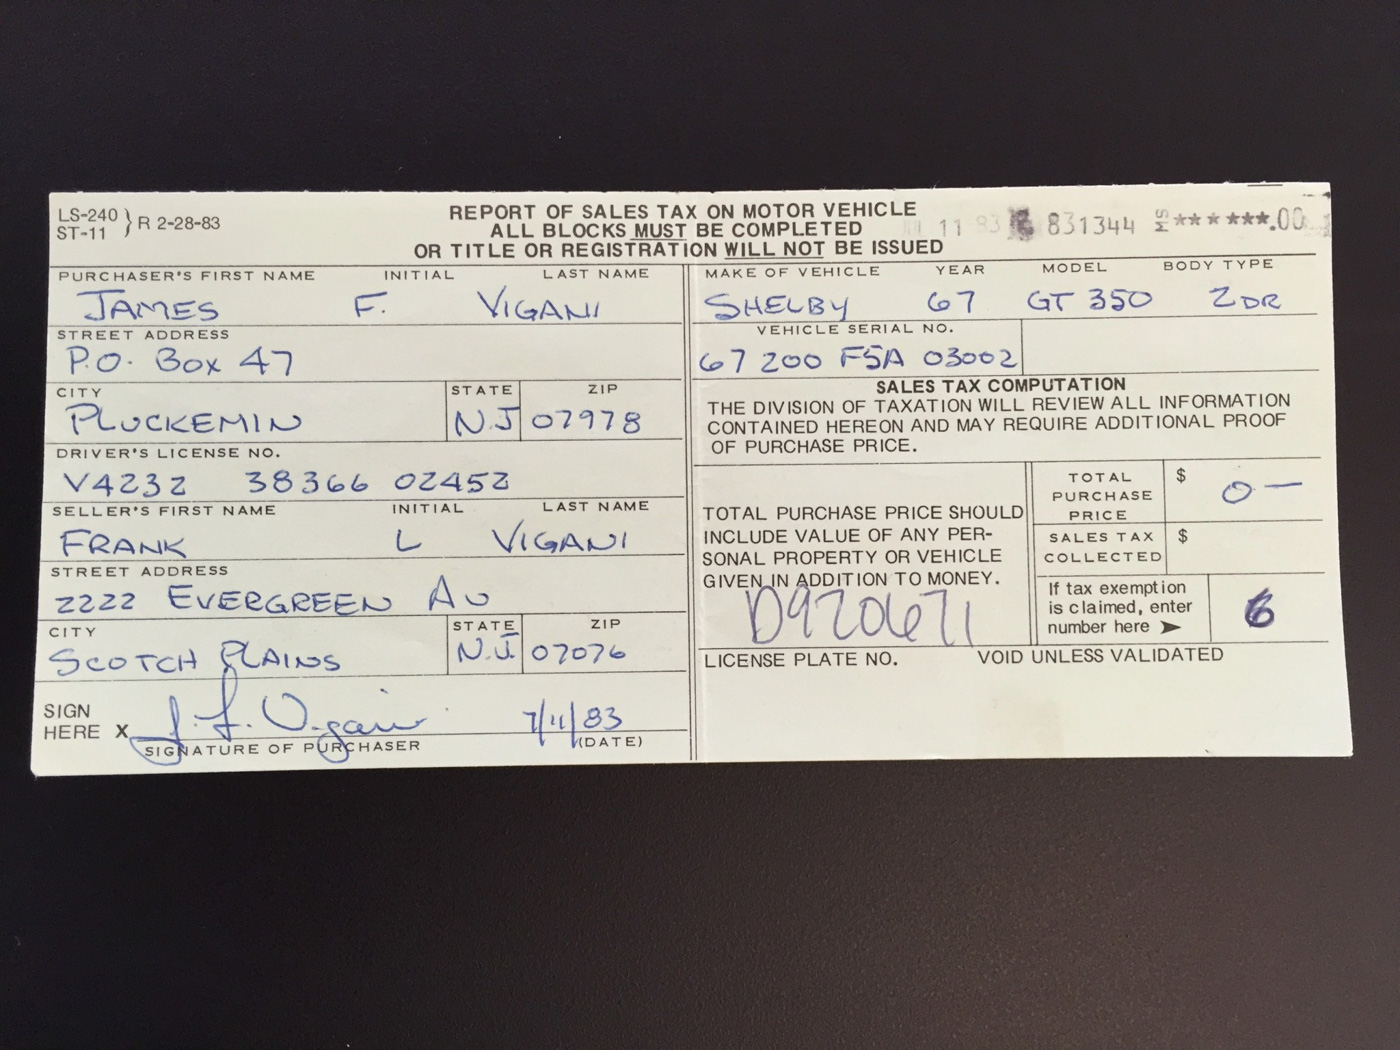 LS-240
ST-11 } R 2-28-83
REPORT OF SALES TAX ON MOTOR VEHICLE
ALL BLOCKS MUST BE COMPLETED
OR TITLE OR REGISTRATION WILL NOT BE ISSUED
11 83 831344 MS ******.00
PURCHASER'S FIRST NAME INITIAL LAST NAME
JAMES F. VIGANI
STREET ADDRESS
P.O. BOX 47
CITY STATE ZIP
PLUCKEMIN N.J 07978
DRIVER'S LICENSE NO.
V4232 38366 02452
SELLER'S FIRST NAME INITIAL LAST NAME
FRANK L VIGANI
STREET ADDRESS
2222 EVERGREEN AV
CITY STATE ZIP
SCOTCH PLAINS N.J. 07076
SIGN
HERE X J. F. Vigani 7/11/83
SIGNATURE OF PURCHASER (DATE)
MAKE OF VEHICLE YEAR MODEL BODY TYPE
SHELBY 67 GT 350 2DR
VEHICLE SERIAL NO.
67 200 F5A 03002
SALES TAX COMPUTATION
THE DIVISION OF TAXATION WILL REVIEW ALL INFORMATION
CONTAINED HEREON AND MAY REQUIRE ADDITIONAL PROOF
OF PURCHASE PRICE.
TOTAL PURCHASE PRICE SHOULD
INCLUDE VALUE OF ANY PER-
SONAL PROPERTY OR VEHICLE
GIVEN IN ADDITION TO MONEY.
D920671
TOTAL
PURCHASE
PRICE
$ 0 —
SALES TAX
COLLECTED
$
If tax exemption
is claimed, enter
number here ➤
6
LICENSE PLATE NO. VOID UNLESS VALIDATED